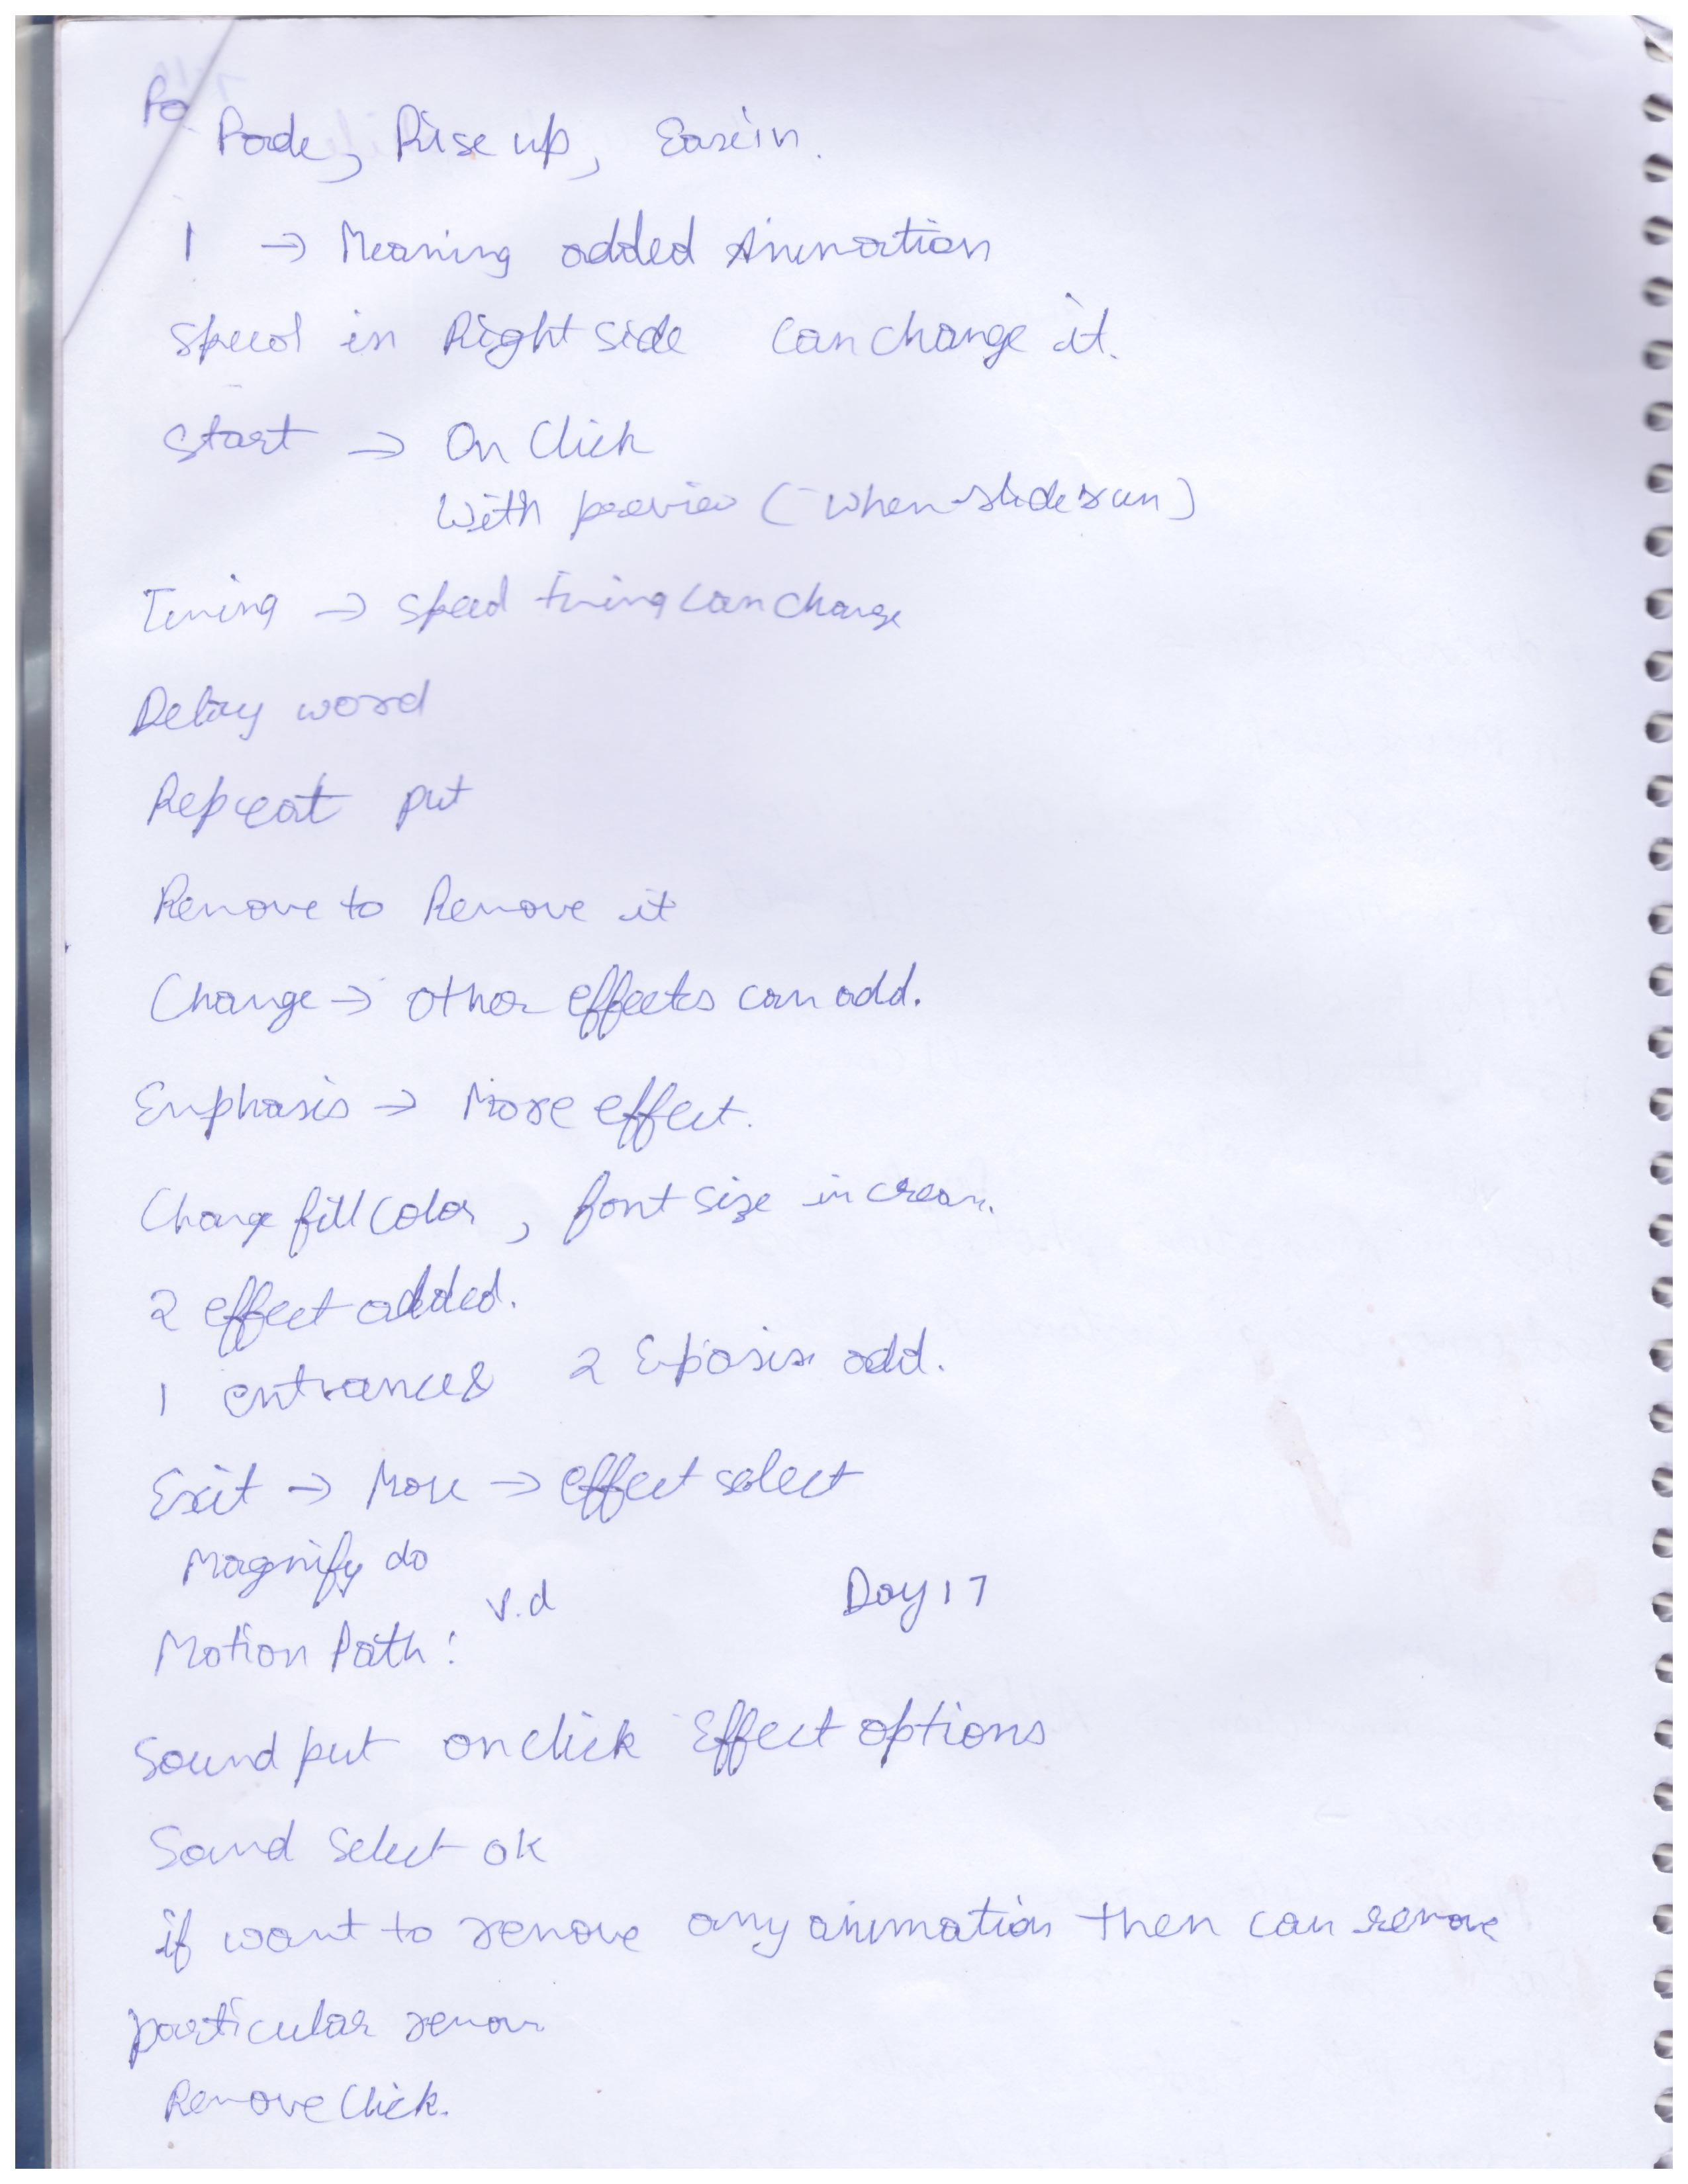 Fa
Fade, Rise up, Easein.
1 → Meaning added Animation
Speed in Right side can change it.
Start → On Click
With preview (when slide run)
Timing → speed timing can change
Delay word
Repeat put
Remove to Remove it
Change → other effects can add.
Emphasis → More effect.
Change fill color, font size increas.
2 effect added.
1 entrance & 2 Epasis add.
Exit → More → effect select
Magnify do
v.d Day 17
Motion Path :
Sound put onclick Effect options
Sound Select ok
if want to remove any animation then can remove
particular remov
Remove Click.